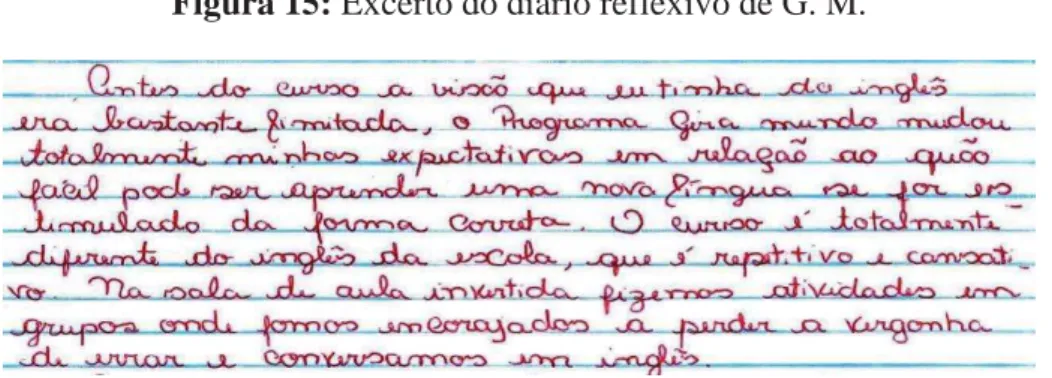 Figura 15: Excerto do diário reflexivo de G. M.
Antes do curso a visão que eu tinha do inglês
era bastante limitada, o Programa Gira mundo mudou
totalmente minhas expectativas em relação ao quão
fácil pode ser aprender uma nova língua se for es
timulado da forma correta. O curso é totalmente
diferente do inglês da escola, que é repetitivo e cansati_
vo. Na sala de aula invertida fizemos atividades em
grupos onde fomos encorajados a perder a vergonha
de errar e conversamos em inglês.